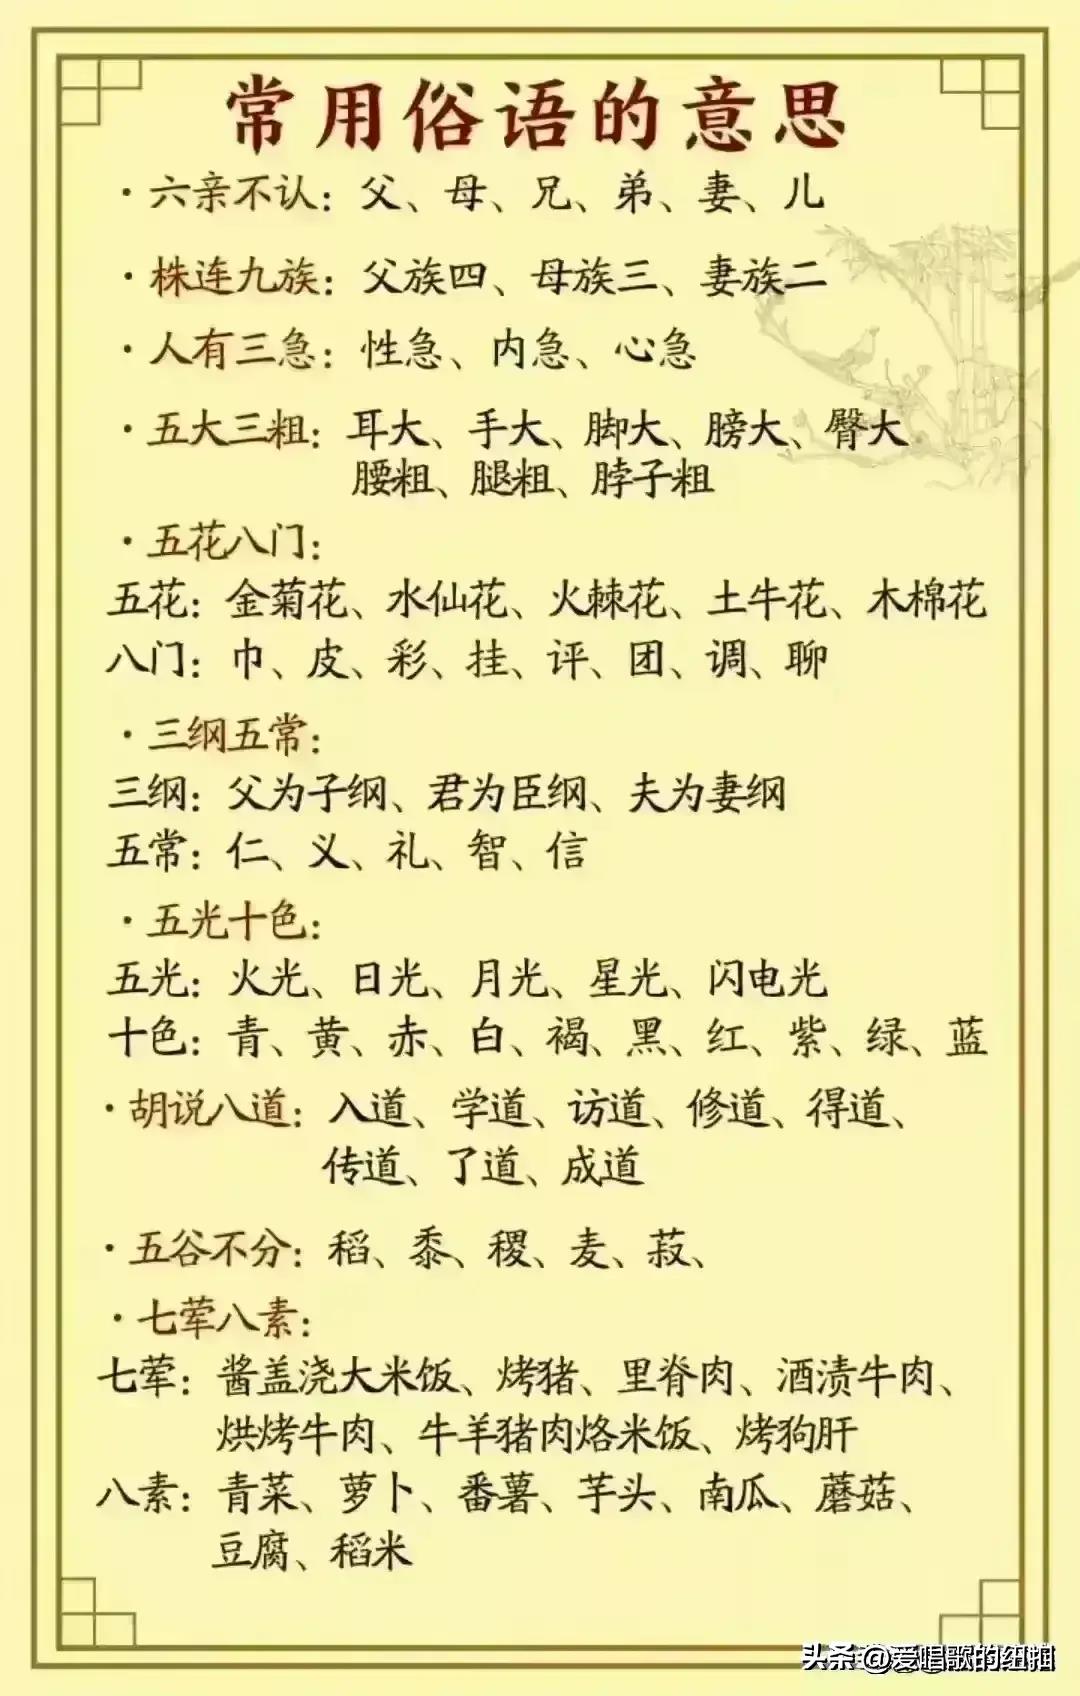 常用俗语的意思
·六亲不认：父、母、兄、弟、妻、儿
·株连九族：父族四、母族三、妻族二
·人有三急：性急、内急、心急
·五大三粗：耳大、手大、脚大、膀大、臀大
腰粗、腿粗、脖子粗
·五花八门：
五花：金菊花、水仙花、火棘花、土牛花、木棉花
八门：巾、皮、彩、挂、评、团、调、聊
·三纲五常：
三纲：父为子纲、君为臣纲、夫为妻纲
五常：仁、义、礼、智、信
·五光十色：
五光：火光、日光、月光、星光、闪电光
十色：青、黄、赤、白、褐、黑、红、紫、绿、蓝
·胡说八道：入道、学道、访道、修道、得道、
传道、了道、成道
·五谷不分：稻、黍、稷、麦、菽、
·七荤八素：
七荤：酱盖浇大米饭、烤猪、里脊肉、酒渍牛肉、
烘烤牛肉、牛羊猪肉烙米饭、烤狗肝
八素：青菜、萝卜、番薯、芋头、南瓜、蘑菇、
豆腐、稻米
头条@爱唱歌的纽扣